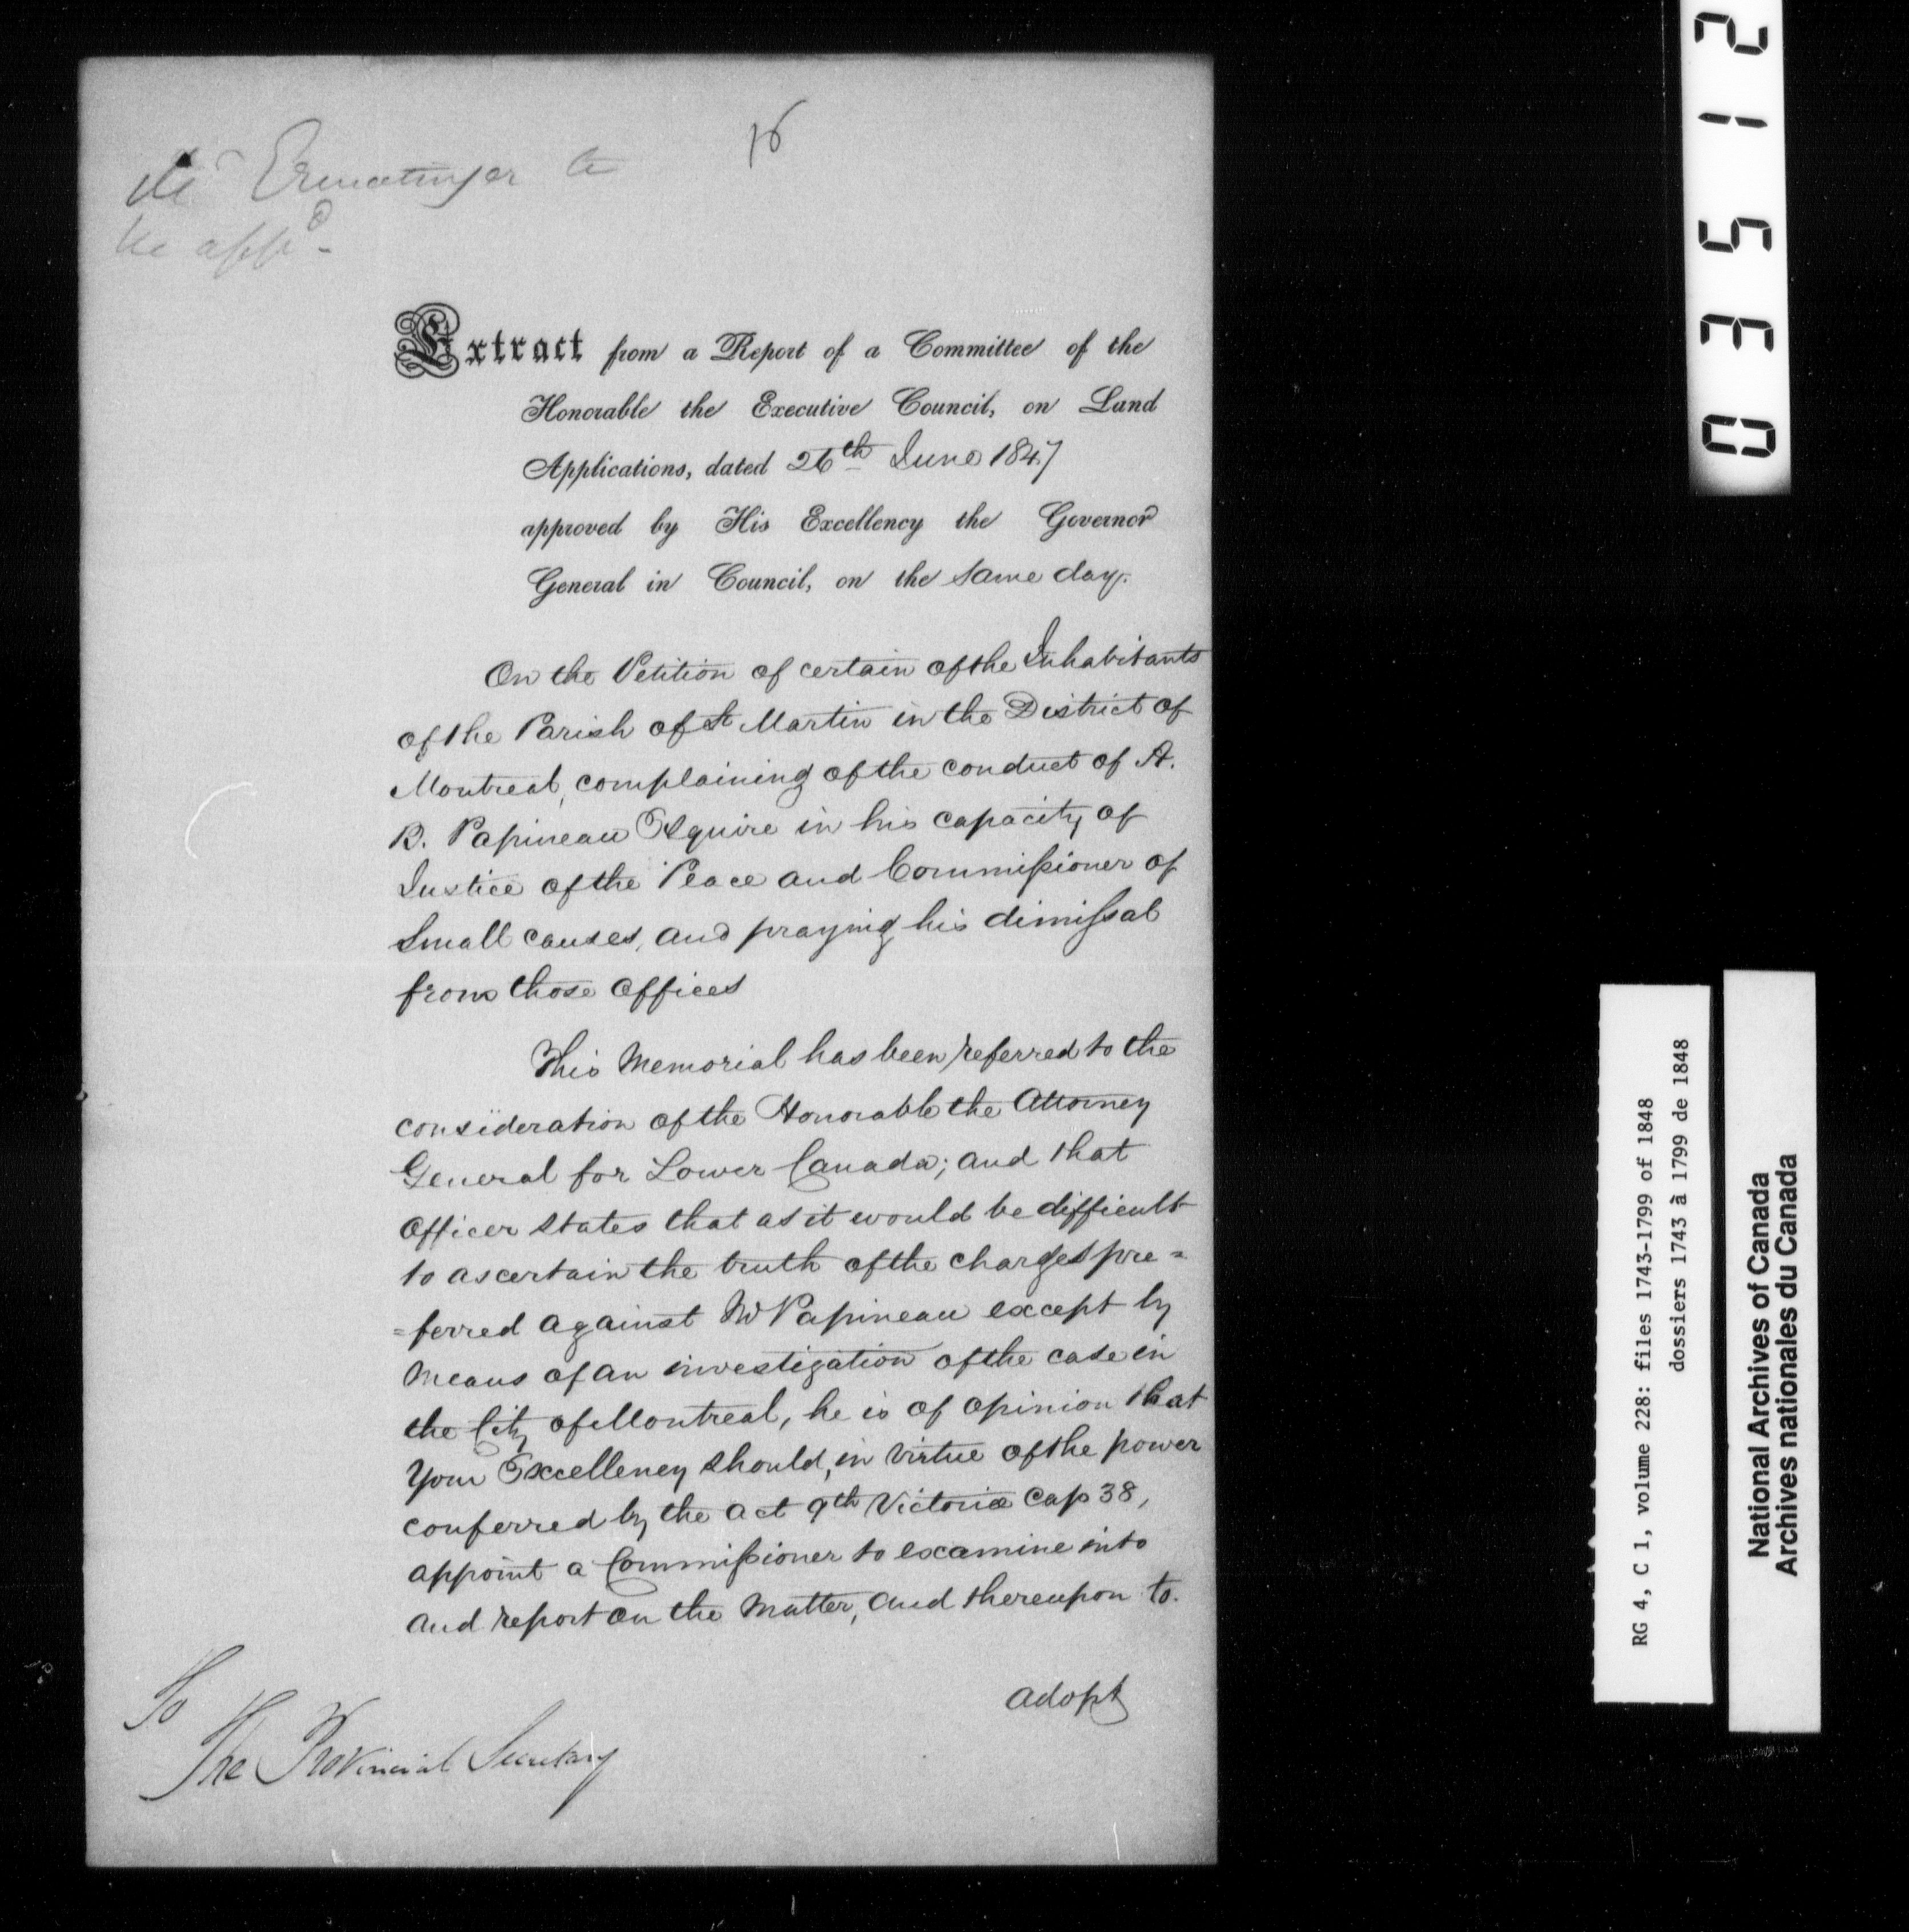 16
Mr Ermatinger to
be appd -
Extract from a Report of a Committee of the
Honorable the Executive Council, on Land
Applications, dated 26th June 1847
approved by His Excellency the Governor
General in Council, on the same day.
On the Petition of certain of the Inhabitants
of the Parish of St Martin in the District of
Montreal, complaining of the conduct of A.
B. Papineau Esquire in his capacity of
Justice of the Peace and Commissioner of
Small causes, and praying his dimissal
from those offices
This Memorial has been referred to the
consideration of the Honorable the Attorney
General for Lower Canada; and that
Officer states that as it would be difficult
to ascertain the truth of the charges pre=
=ferred against Mr Papineau except by
means of an investigation of the case in
the City of Montreal, he is of opinion that
Your Excellency should, in virtue of the power
conferred by the act 9th Victoria Cap 38,
appoint a Commissioner to examine into
and report on the Matter, and thereupon to.
adopt
To
The Provincial Secretary
03512
RG 4, C 1, volume 228: files 1743-1799 of 1848
dossiers 1743 à 1799 de 1848
National Archives of Canada
Archives nationales du Canada